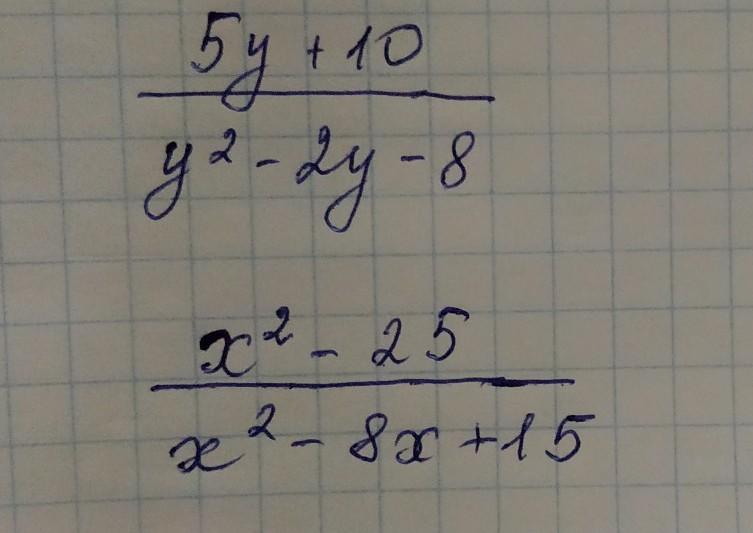 5y + 10
y² - 2y - 8
x² - 25
x² - 8x + 15